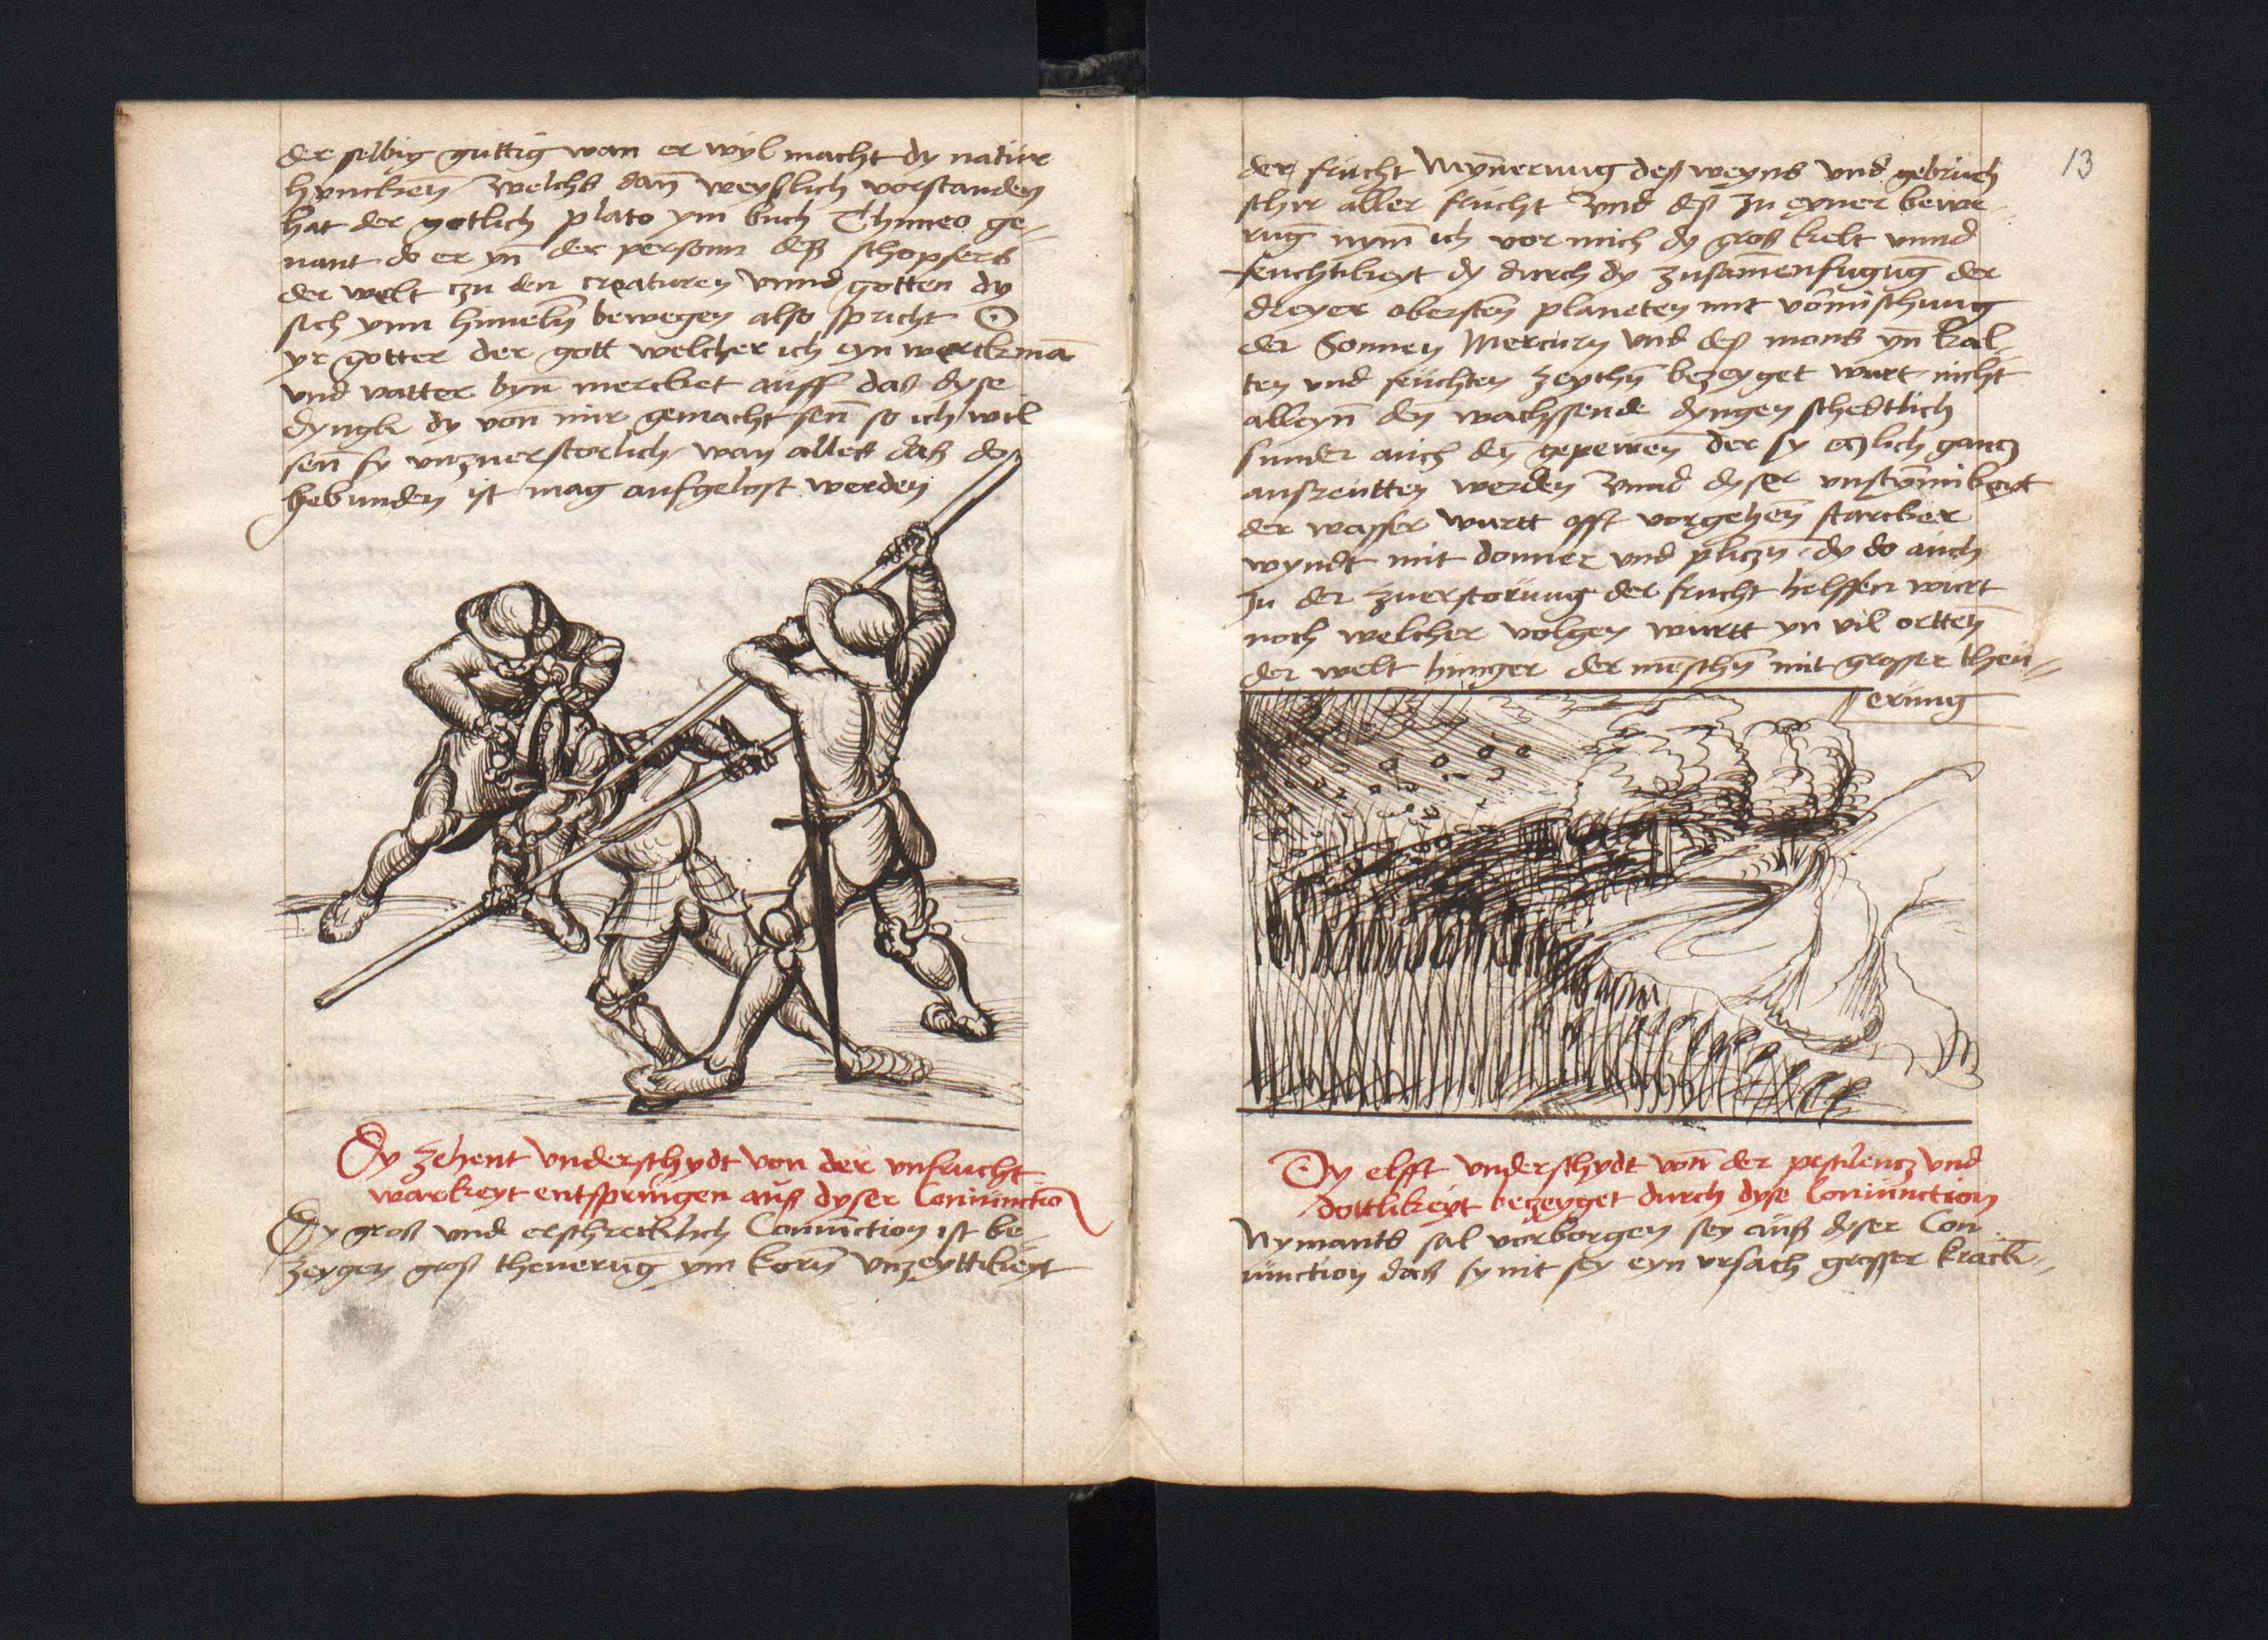 der selbig guttig wan er wyl macht dy natur
hynckenn welchs dan̄ weyslich vorstanden
hat der gotlich plato ym buch Thimeo ge-
nant do er yn̄ der person deß schopfers
der welt czu den creaturen vnnd gotten dy
sich ynn himelñ bewegen also spricht O
yr gotter der gott welcher ich eyn werckman̄
vnd vatter byn̄ mercket auff daß dyse
dyngk dy von̄ mir gemacht sen̄ so ich wil
sen̄ sy vnzuerstorlich wan alles daß do
gebunden ist mag aufgelost werden
Dy zehent vnderschydt von der vnfrucht
warkeyt entspringen auß dyser Coniunctio
Dy groß vnd erschrecklich Coniunction ist be-
zeygen groß theuerūg ym korn̄ vnzeyttikeyt
13
der frucht Myn̄erung deß weyns vnd gebruch
schir aller frucht vnd deß zu eyner bewe-
rūg nym̄ ich vor mich dy groß kelt vnnd
feuchtikeyt dy durch dy zusam̄enfugūg der
dreyer obersten̄ planeten mit vormischung
der Sonnen Mercury vnd deß mons yn̄ kal-
ten vnd feuchten zeychn̄ bezeyget wurt nicht
alleyn̄ den̄ wachssende dyngen schedtlich
sunder auch den̄ gepewen̄ der sy eczlich gancz
außreutten werden vnnd dyser vnstym̄ikeyt
der wasser wurtt offt vorgehen̄ starcker
wyndt mit donner vnd pliczn̄ dy do auch
zu der zuerstorung der frucht helffen wurt
noch welcher volgen wurtt yn vil ortten̄
der welt hunger der menschn̄ mit grosser theu-
erung
Dy elfft vnderschydt von̄ der pestilencz vnd
dottlikeyt bezeyget durch dyse Coniunction
Nymants sal vorborgen sey auß dyser Con
iunction daß sy nit sey eyn vrsach grosser krāck-